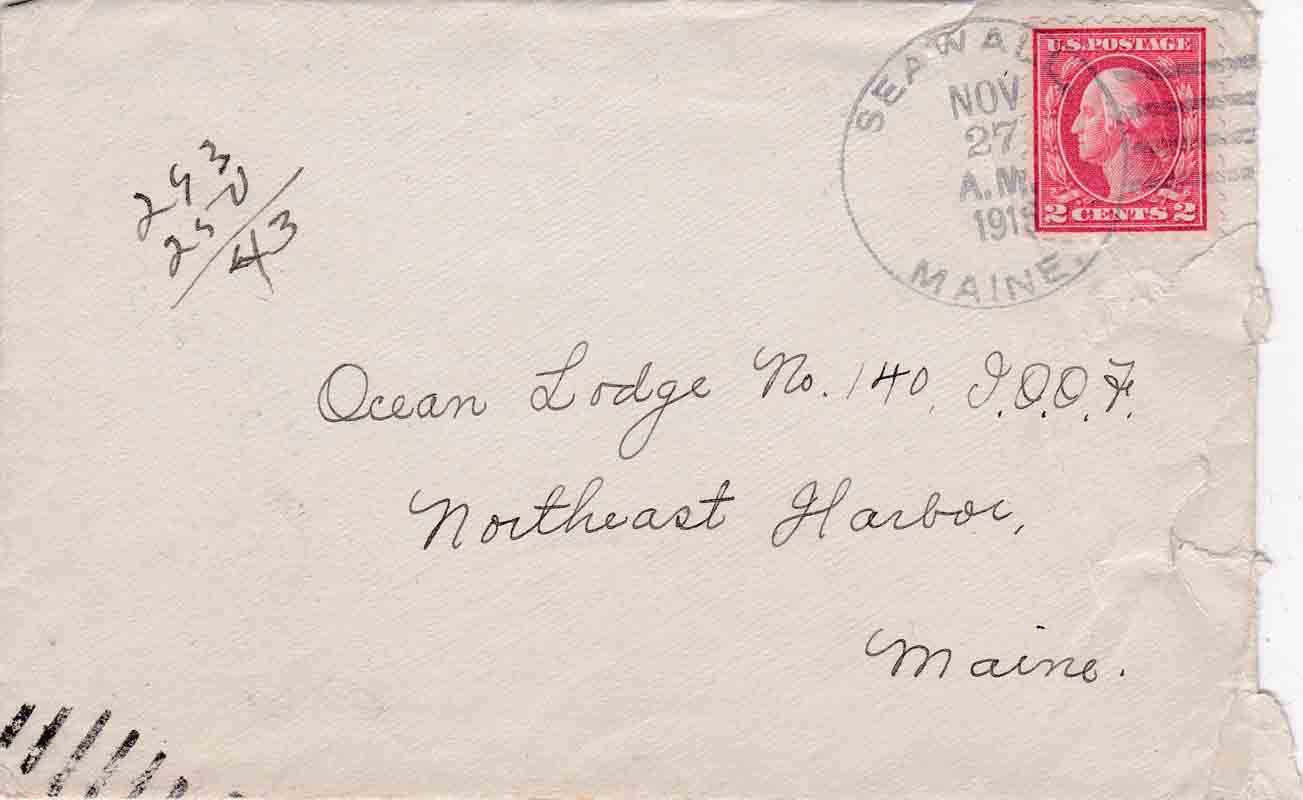 SEAWALL
NOV
27
A.M.
MAINE.
U.S. POSTAGE
2 CENTS 2
293
250
43
Ocean Lodge No. 140, I.O.O.F.
Northeast Harbor,
Maine.